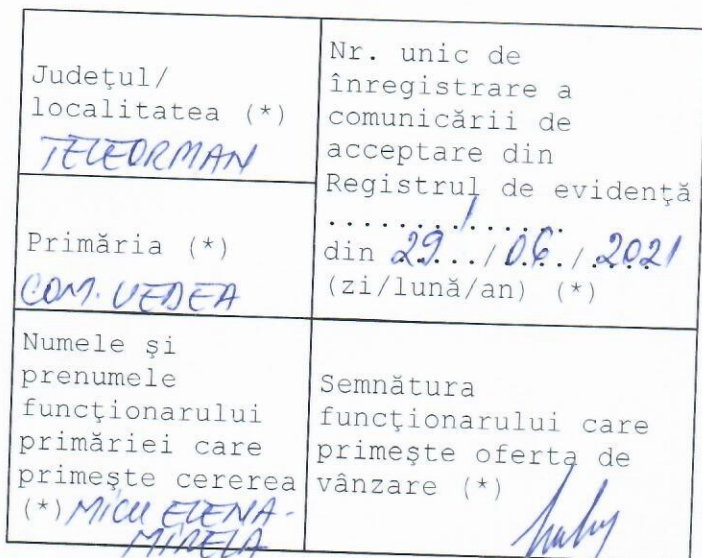 Judeţul/
localitatea (*)
TELEORMAN
Primăria (*)
COM. VEDEA
Nr. unic de
înregistrare a
comunicării de
acceptare din
Registrul de evidenţă
.......1.......
din 29.../06./.2021
(zi/lună/an) (*)
Numele şi
prenumele
funcţionarului
primăriei care
primeşte cererea
(*) MICU ELENA-
MIRELA
Semnătura
funcţionarului care
primeşte oferta de
vânzare (*)